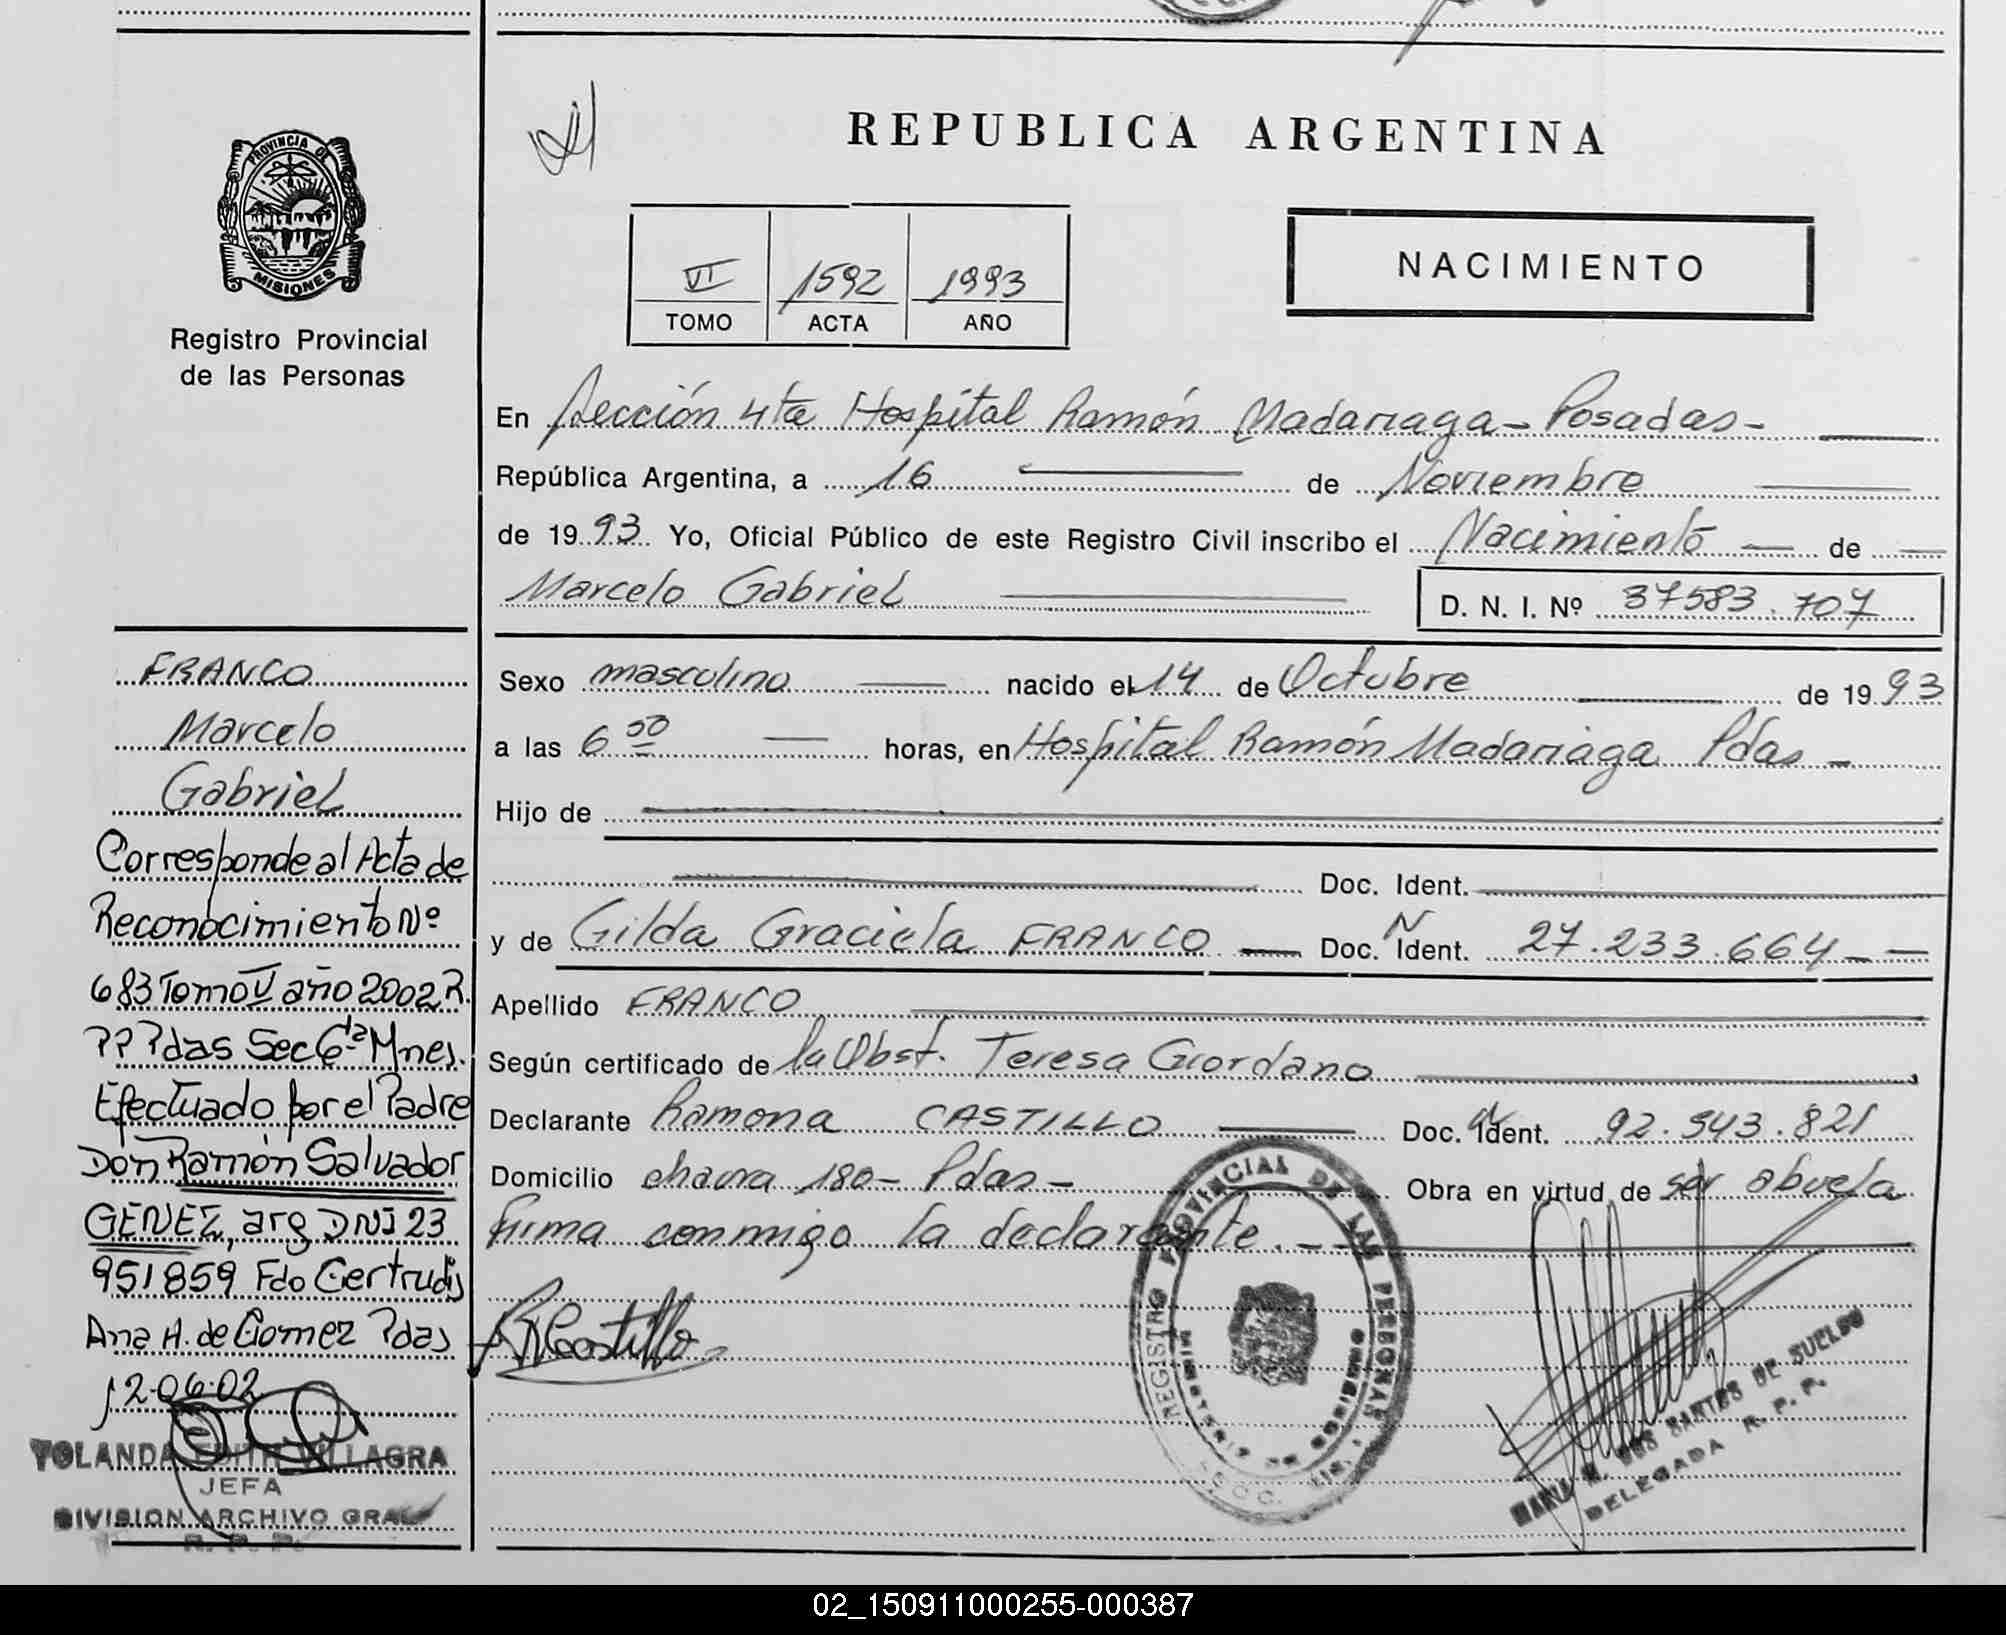 PROVINCIA DE
MISIONES
Registro Provincial
de las Personas
FRANCO
Marcelo
Gabriel
Corresponde al Acta de
Reconocimiento Nº
683 Tomo V año 2002 R.
P P Pdas Sec 6ta Mnes.
Efectuado por el Padre
Don Ramón Salvador
GENEZ, arg DNI 23
951859 Fdo Gertrudis
Ana H. de Gomez Pdas
12-06-02
YOLANDA EDITH VILLAGRA
JEFA
DIVISION ARCHIVO GRAL
R. P. P.
REPUBLICA ARGENTINA
VI 1592 1993
TOMO ACTA AÑO
NACIMIENTO
En Sección 4ta Hospital Ramón Madariaga - Posadas -
República Argentina, a 16 de Noviembre
de 1993 Yo, Oficial Público de este Registro Civil inscribo el Nacimiento de
Marcelo Gabriel D. N. I. Nº 37583.707
Sexo masculino nacido el 14 de Octubre de 1993
a las 6 50 horas, en Hospital Ramón Madariaga Pdas -
Hijo de
Doc. Ident.
y de Gilda Graciela FRANCO Doc. N Ident. 27.233.664
Apellido FRANCO
Según certificado de la Obst. Teresa Giordano
Declarante Ramona CASTILLO Doc. Ident. 92.543.821
Domicilio chacra 180 - Pdas - Obra en virtud de ser abuela
firma conmigo la declarante. - -
RCastillo
REGISTRO PROVINCIAL DE LAS PERSONAS
MINISTERIO DE GOBIERNO
MARIA M. DOS SANTOS DE SUELDO
DELEGADA R. P. P.
02_150911000255-000387